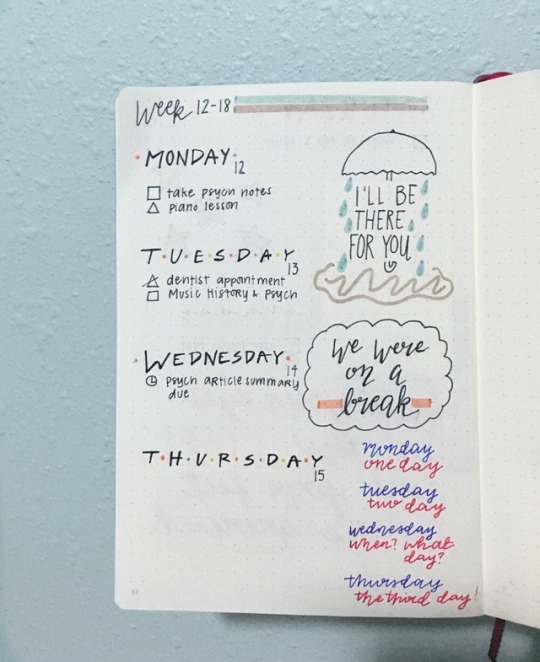 Week 12-18
MONDAY
12
take psych notes
piano lesson
T·U·E·S·D·A·Y
13
dentist appointment
Music History & psych
WEDNESDAY
14
psych article summary
due
T·H·U·R·S·D·A·Y
15
I'LL BE
THERE
FOR YOU
We were
on a
break
monday
one day
tuesday
two day
wednesday
when? what
day?
thursday
the third day!